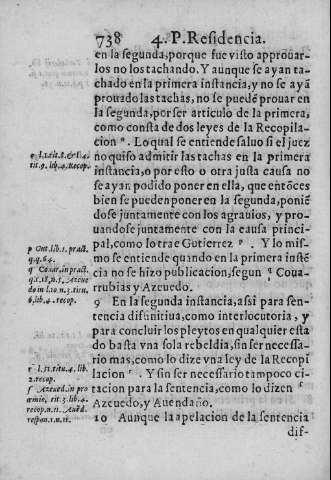 738 4. P. Residencia.
en la segunda, porque fue visto approuar-
los no los tachando. Y aunque se ayan ta-
chado en la primera instancia, y no se ayã
prouado las tachas, no se puede prouar en
la segunda, por ser articulo de la primera,
como consta de dos leyes de la Recopila-
cion º. Lo qual se entiende saluo si el juez
no quiso admitir las tachas en la primera
instancia, o por esto o otra justa causa no
se ayan podido poner en ella, que entõces
bien se pueden poner en la segunda, poniẽ
dose juntamente con los agrauios, y pro-
uandose juntamente con la causa princi-
pal, como lo trae Gutierrez p. Y lo mis-
mo se entiende quando en la primera instã
cia no se hizo publicacion, segun q Coua-
rrubias y Azeuedo.
9 En la segunda instancia, assi para sen-
tencia difinitiua, como interlocutoria, y
para concluir los pleytos en qualquier esta
do basta vna sola rebeldia, sin ser necessa-
rio mas, como lo dize vna ley de la Recopi
lacion r. Y sin ser necessario tampoco ci-
tacion para la sentencia, como lo dizen s
Azeuedo, y Auendaño.
10 Aunque la apelacion de la sentencia
dif-
o l.1. tit. 8. & l. 4.
tit. 9. lib. 4. Recop.
p Gut. lib. 1. pract.
q. q. 64.
q Couar. in pract.
q. c. 18. n. 5. Azeue
do in l. 10. n. 3. titu.
6. lib. 4. recop.
r l. 11. titu. 4. lib.
2. recop.
s Azeued. in pro
œmio, tit. 3. lib. 4.
recop. n. 11. Auẽd.
respon. 1. n. 11.